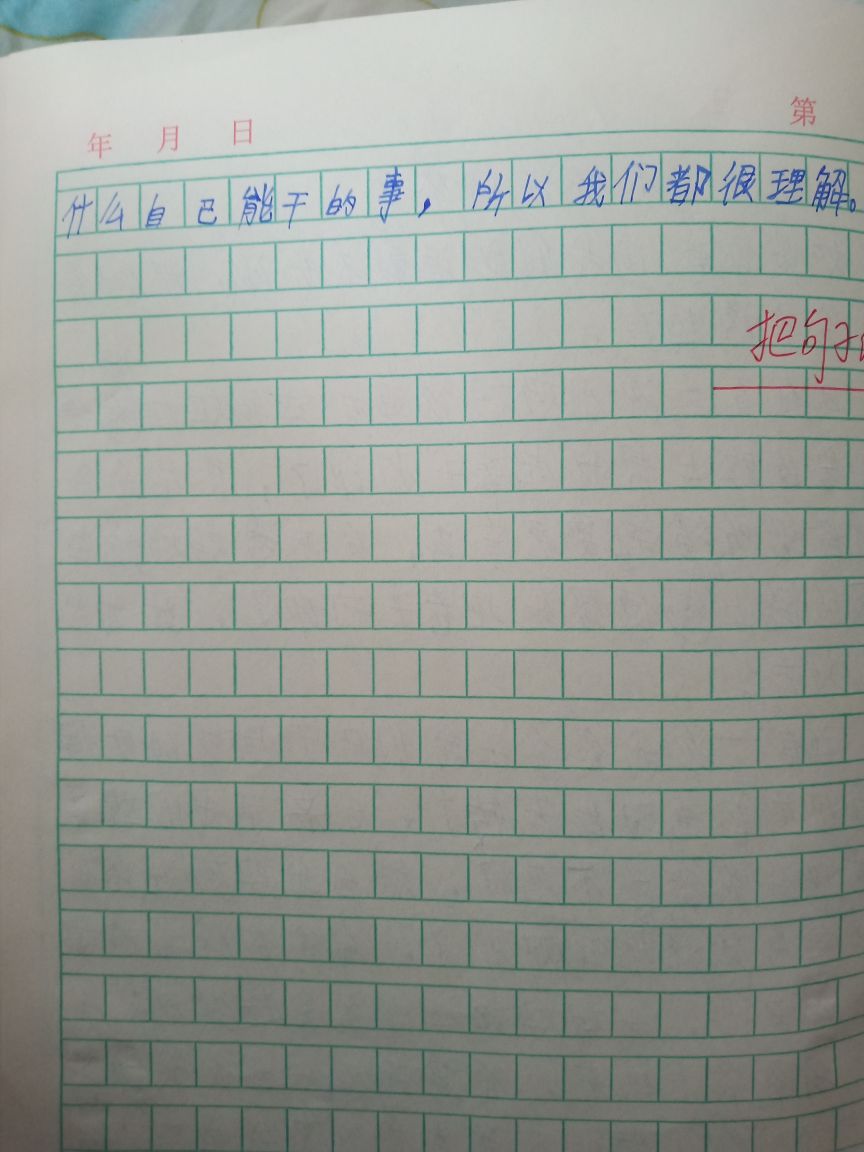 年 月 日 第
什么自己能干的事，所以我们都很理解。
把句子